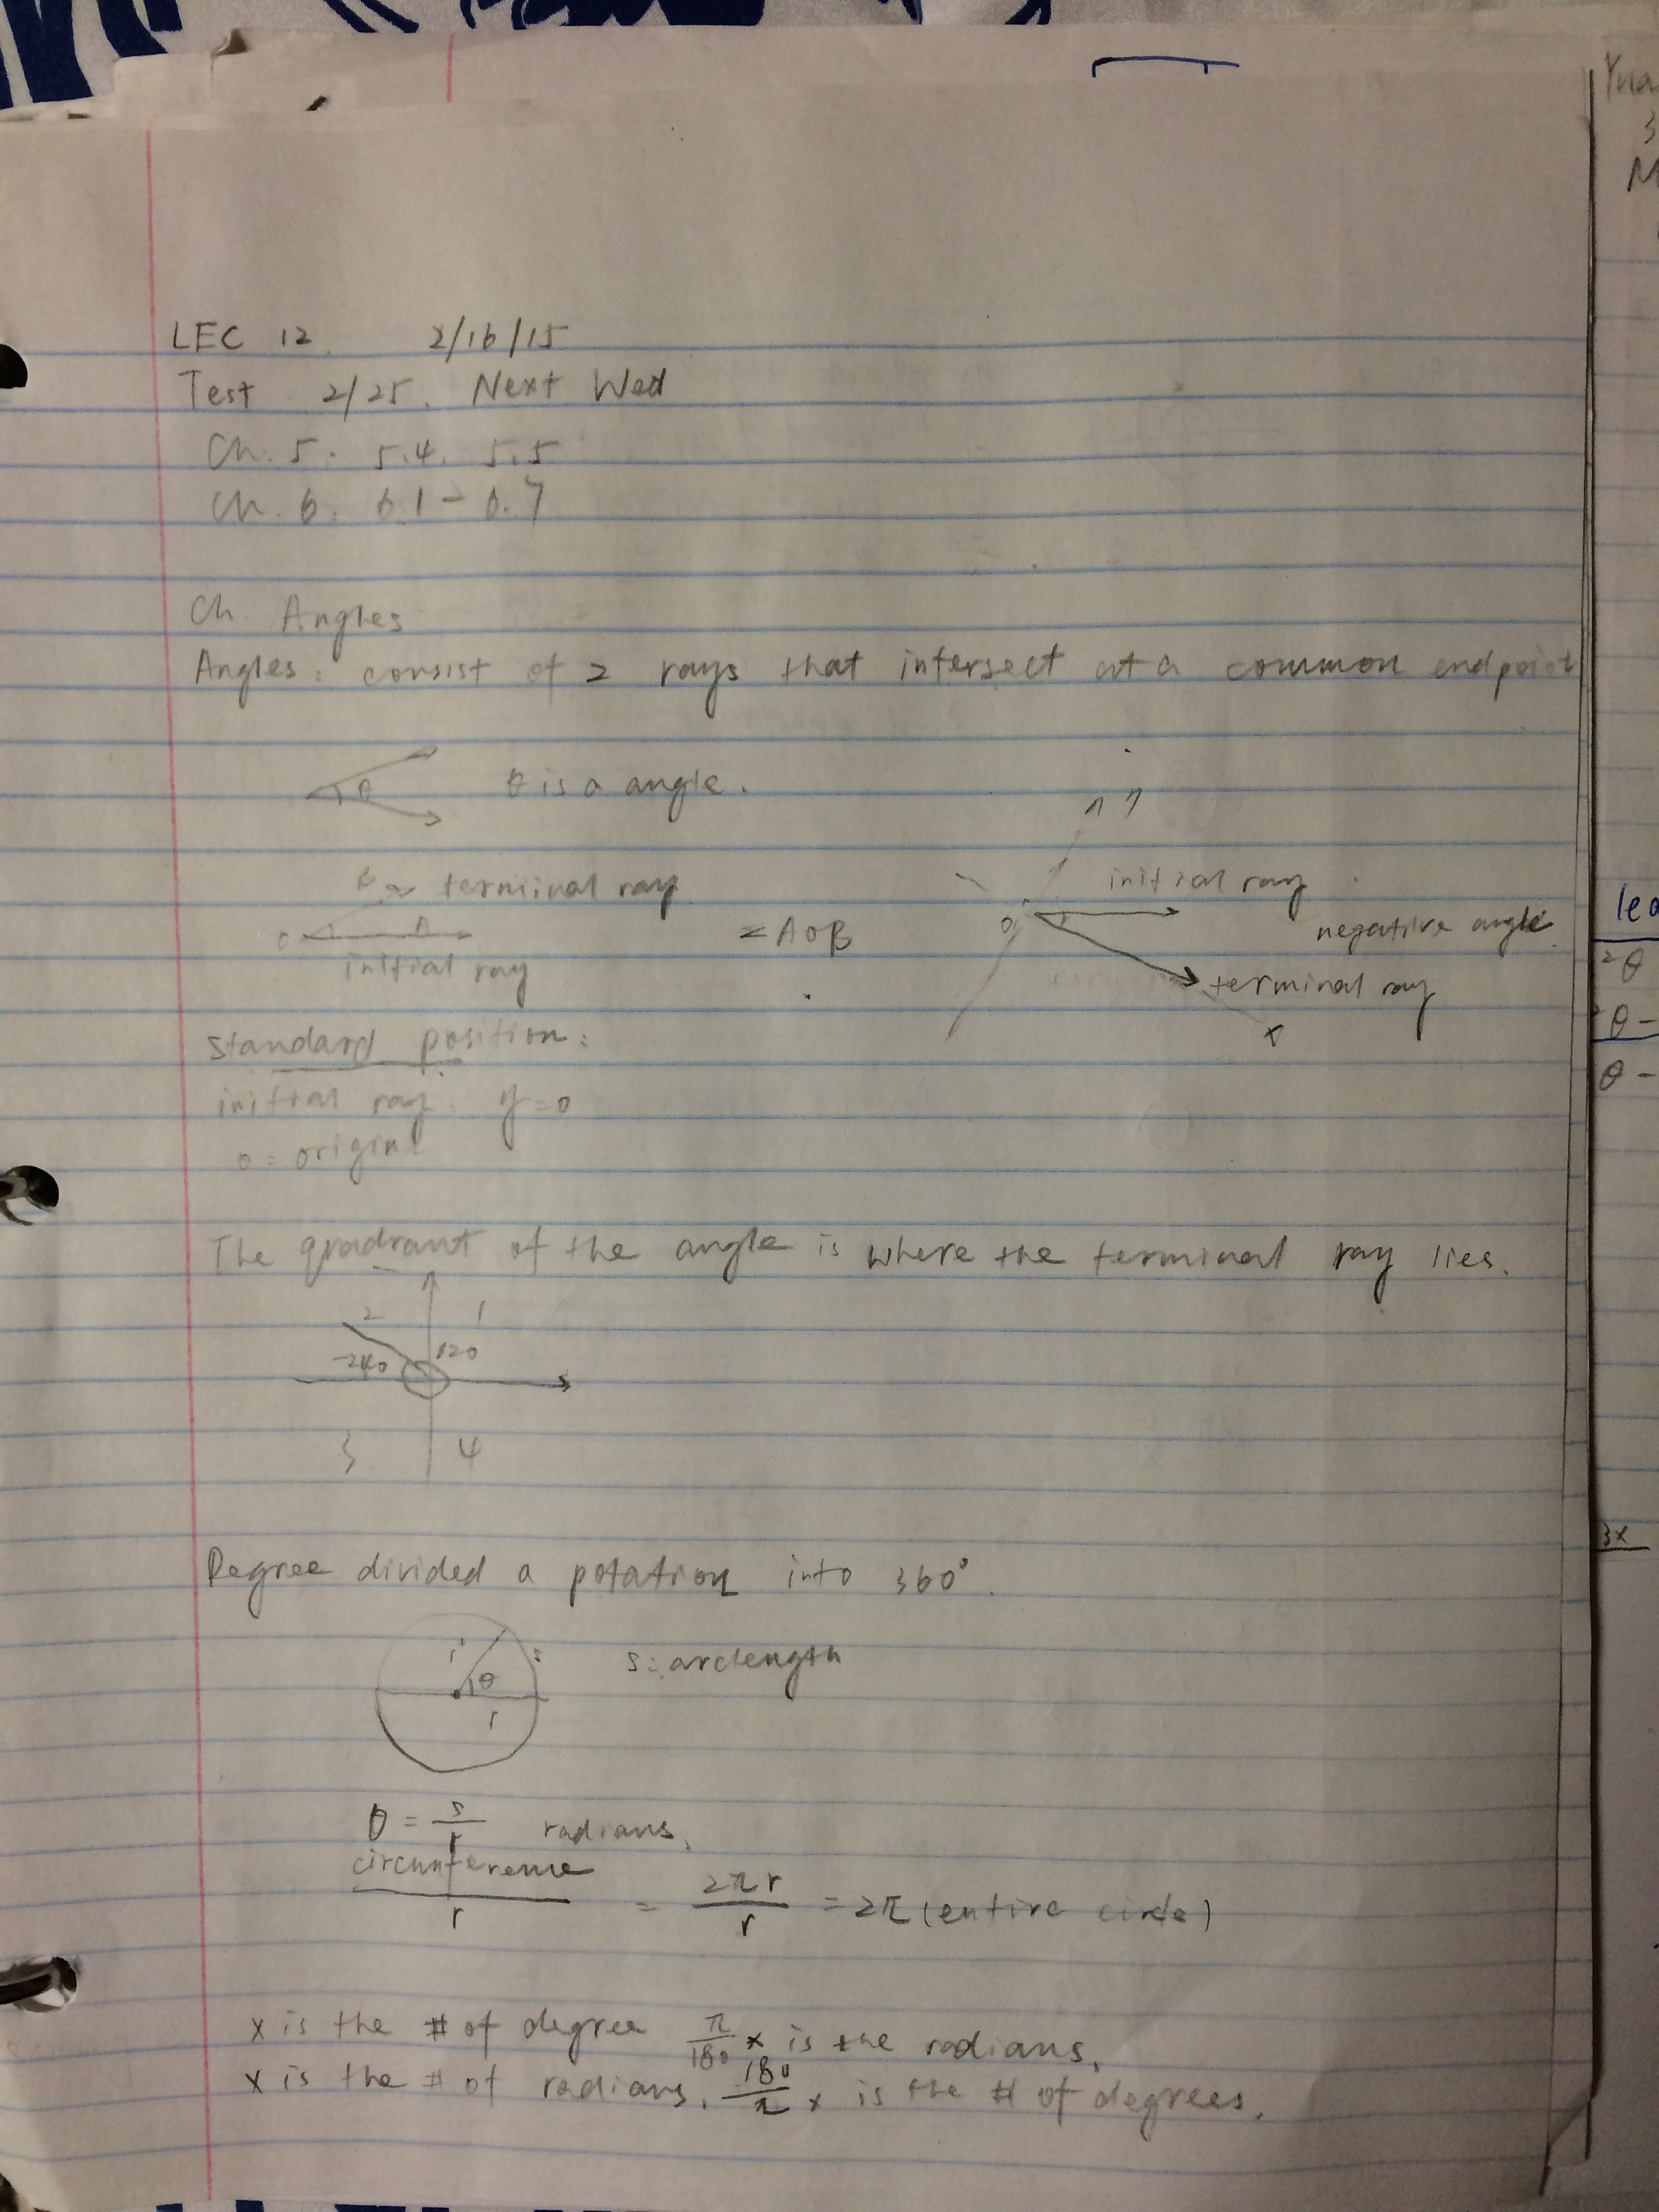 LEC 12 2/16/15
Test 2/25. Next Wed
Ch. 5. 5.4. 5.5
Ch. 6. 6.1-6.7
Ch. Angles
Angles: consist of 2 rays that intersect at a common endpoint
θ
θ is a angle.
B terminal ray
O A
initial ray
∠AOB
initial ray
O
negative angle
terminal ray
x
standard position:
initial ray: y=0
o = origin
The quadrant of the angle is where the terminal ray lies.
2 1
-240 120
3 4
Degree divided a rotation into 360°.
r s
θ
r
s: arclength
θ = s/r radians.
circumference/r = 2πr/r = 2π (entire circle)
x is the # of degree π/180 x is the radians.
x is the # of radians. 180/π x is the # of degrees.
Yua
3
M
lea
2θ
θ-
θ-
3x